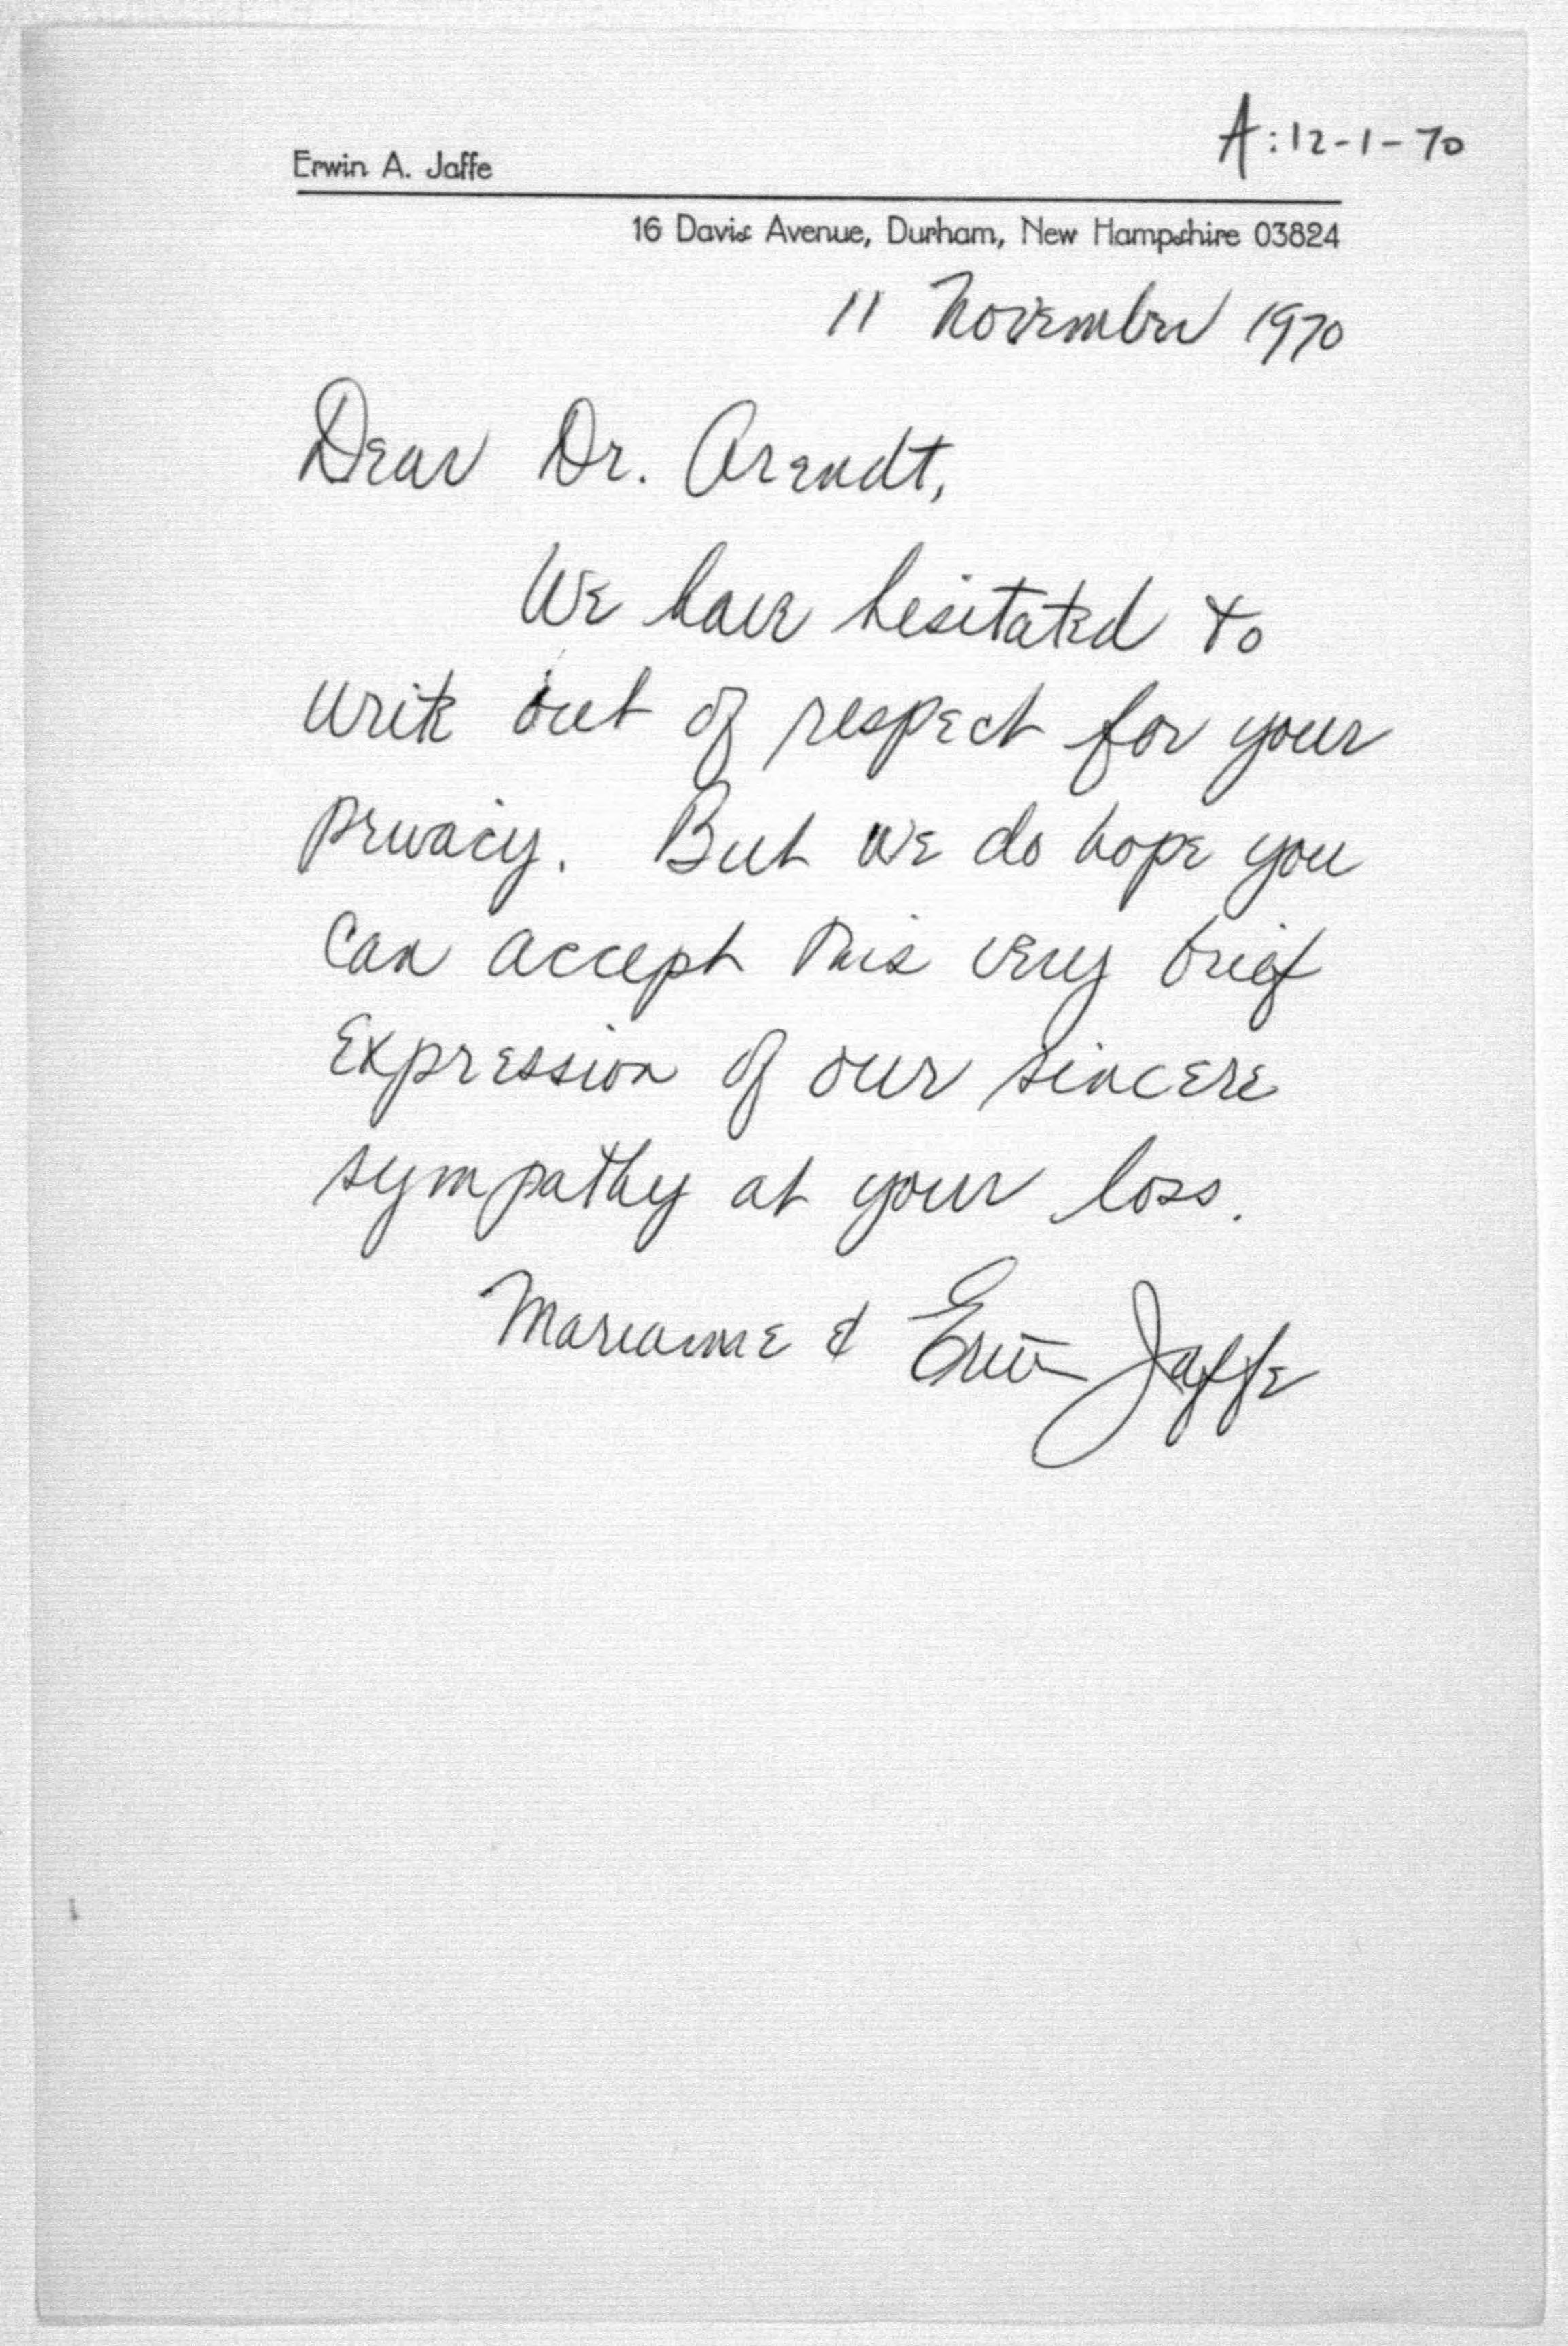 A: 12-1-70
Erwin A. Jaffe
16 Davis Avenue, Durham, New Hampshire 03824
11 November 1970
Dear Dr. Arendt,
We have hesitated to
write out of respect for your
privacy. But we do hope you
can accept this very brief
expression of our sincere
sympathy at your loss.
Marianne & Erwin Jaffe